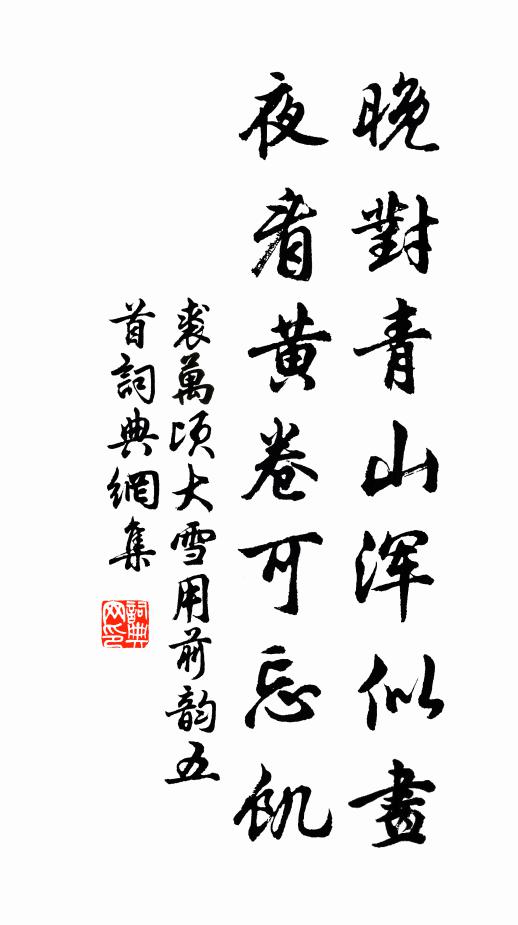 晚對青山渾似畫
夜看黃卷可忘飢
裘萬頃大雪用前韵五
首詞典網集
詞典網印